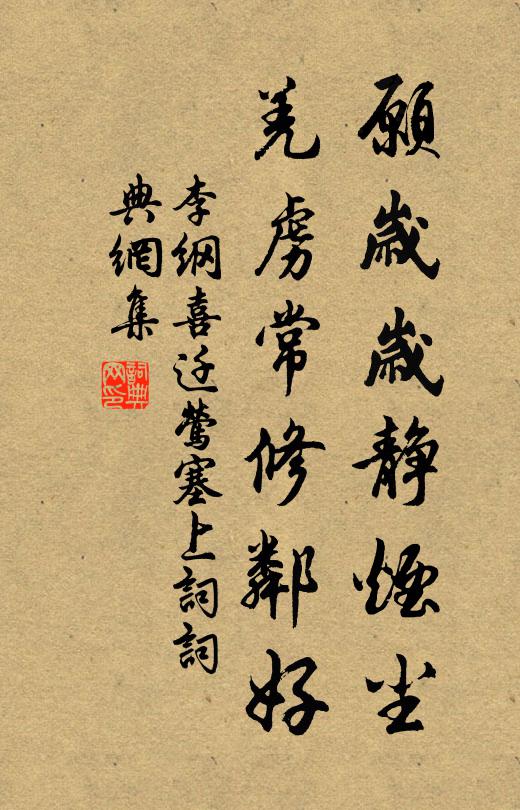 願歲歲靜煙尘
羌虜常修鄰好
李綱喜迁鶯塞上詞詞
典網集
詞典網印